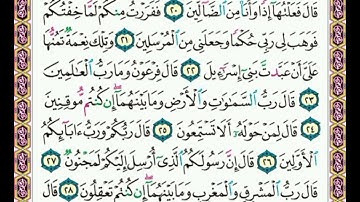 قَالَ فَعَلْتُهَآ إِذًا وَأَنَا۠ مِنَ ٱلضَّآلِّينَ ٢٠ فَفَرَرْتُ مِنكُمْ لَمَّا خِفْتُكُمْ
فَوَهَبَ لِى رَبِّى حُكْمًا وَجَعَلَنِى مِنَ ٱلْمُرْسَلِينَ ٢١ وَتِلْكَ نِعْمَةٌ تَمُنُّهَا
عَلَىَّ أَنْ عَبَّدتَّ بَنِىٓ إِسْرَٰٓءِيلَ ٢٢ قَالَ فِرْعَوْنُ وَمَا رَبُّ ٱلْعَٰلَمِينَ
٢٣ قَالَ رَبُّ ٱلسَّمَٰوَٰتِ وَٱلْأَرْضِ وَمَا بَيْنَهُمَآ إِن كُنتُم مُّوقِنِينَ
٢٤ قَالَ لِمَنْ حَوْلَهُۥٓ أَلَا تَسْتَمِعُونَ ٢٥ قَالَ رَبُّكُمْ وَرَبُّ ءَابَآئِكُمُ
ٱلْأَوَّلِينَ ٢٦ قَالَ إِنَّ رَسُولَكُمُ ٱلَّذِىٓ أُرْسِلَ إِلَيْكُمْ لَمَجْنُونٌ ٢٧
قَالَ رَبُّ ٱلْمَشْرِقِ وَٱلْمَغْرِبِ وَمَا بَيْنَهُمَآ إِن كُنتُمْ تَعْقِلُونَ ٢٨ قَالَ